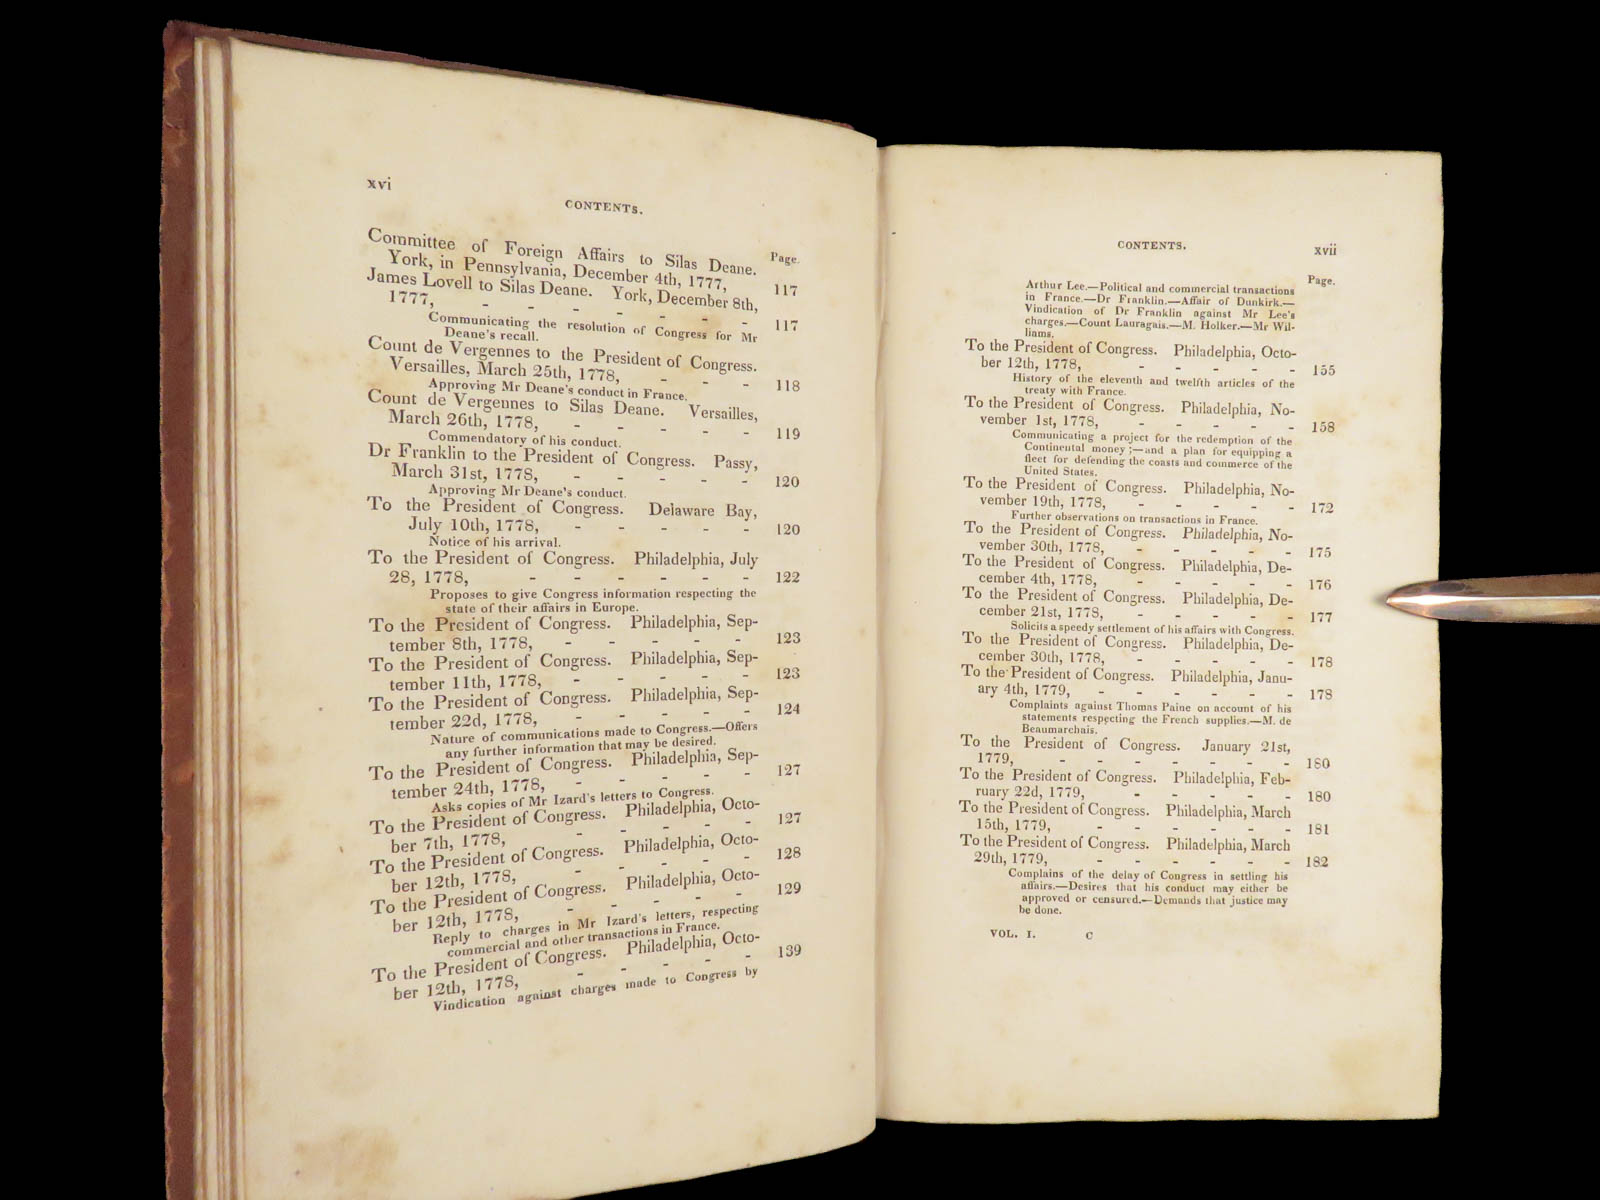 xvi
CONTENTS.
Page.
Committee of Foreign Affairs to Silas Deane.
York, in Pennsylvania, December 4th, 1777, 117
James Lovell to Silas Deane. York, December 8th,
1777, - - - - - - - 117
Communicating the resolution of Congress for Mr
Deane's recall.
Count de Vergennes to the President of Congress.
Versailles, March 25th, 1778, - - - 118
Approving Mr Deane's conduct in France.
Count de Vergennes to Silas Deane. Versailles,
March 26th, 1778, - - - - - 119
Commendatory of his conduct.
Dr Franklin to the President of Congress. Passy,
March 31st, 1778, - - - - - 120
Approving Mr Deane's conduct.
To the President of Congress. Delaware Bay,
July 10th, 1778, - - - - - 120
Notice of his arrival.
To the President of Congress. Philadelphia, July
28, 1778, - - - - - - 122
Proposes to give Congress information respecting the
state of their affairs in Europe.
To the President of Congress. Philadelphia, Sep-
tember 8th, 1778, - - - - - 123
To the President of Congress. Philadelphia, Sep-
tember 11th, 1778, - - - - - 123
To the President of Congress. Philadelphia, Sep-
tember 22d, 1778, - - - - - 124
Nature of communications made to Congress.—Offers
any further information that may be desired.
To the President of Congress. Philadelphia, Sep-
tember 24th, 1778, - - - - - 127
Asks copies of Mr Izard's letters to Congress.
To the President of Congress. Philadelphia, Octo-
ber 7th, 1778, - - - - - 127
To the President of Congress. Philadelphia, Octo-
ber 12th, 1778, - - - - - 128
To the President of Congress. Philadelphia, Octo-
ber 12th, 1778, - - - - - 129
Reply to charges in Mr Izard's letters, respecting
commercial and other transactions in France.
To the President of Congress. Philadelphia, Octo-
ber 12th, 1778, - - - - - 139
Vindication against charges made to Congress by
CONTENTS. xvii
Page.
Arthur Lee.—Political and commercial transactions
in France.—Dr Franklin.—Affair of Dunkirk.—
Vindication of Dr Franklin against Mr Lee's
charges.—Count Lauragais.—M. Holker.—Mr Wil-
liams.
To the President of Congress. Philadelphia, Octo-
ber 12th, 1778, - - - - - 155
History of the eleventh and twelfth articles of the
treaty with France.
To the President of Congress. Philadelphia, No-
vember 1st, 1778, - - - - - 158
Communicating a project for the redemption of the
Continental money;—and a plan for equipping a
fleet for defending the coasts and commerce of the
United States.
To the President of Congress. Philadelphia, No-
vember 19th, 1778, - - - - - 172
Further observations on transactions in France.
To the President of Congress. Philadelphia, No-
vember 30th, 1778, - - - - - 175
To the President of Congress. Philadelphia, De-
cember 4th, 1778, - - - - - 176
To the President of Congress. Philadelphia, De-
cember 21st, 1778, - - - - - 177
Solicits a speedy settlement of his affairs with Congress.
To the President of Congress. Philadelphia, De-
cember 30th, 1778, - - - - - 178
To the President of Congress. Philadelphia, Janu-
ary 4th, 1779, - - - - - - 178
Complaints against Thomas Paine on account of his
statements respecting the French supplies.—M. de
Beaumarchais.
To the President of Congress. January 21st,
1779, - - - - - - - 180
To the President of Congress. Philadelphia, Feb-
ruary 22d, 1779, - - - - - 180
To the President of Congress. Philadelphia, March
15th, 1779, - - - - - - 181
To the President of Congress. Philadelphia, March
29th, 1779, - - - - - - 182
Complains of the delay of Congress in settling his
affairs.—Desires that his conduct may either be
approved or censured.—Demands that justice may
be done.
VOL. I. C